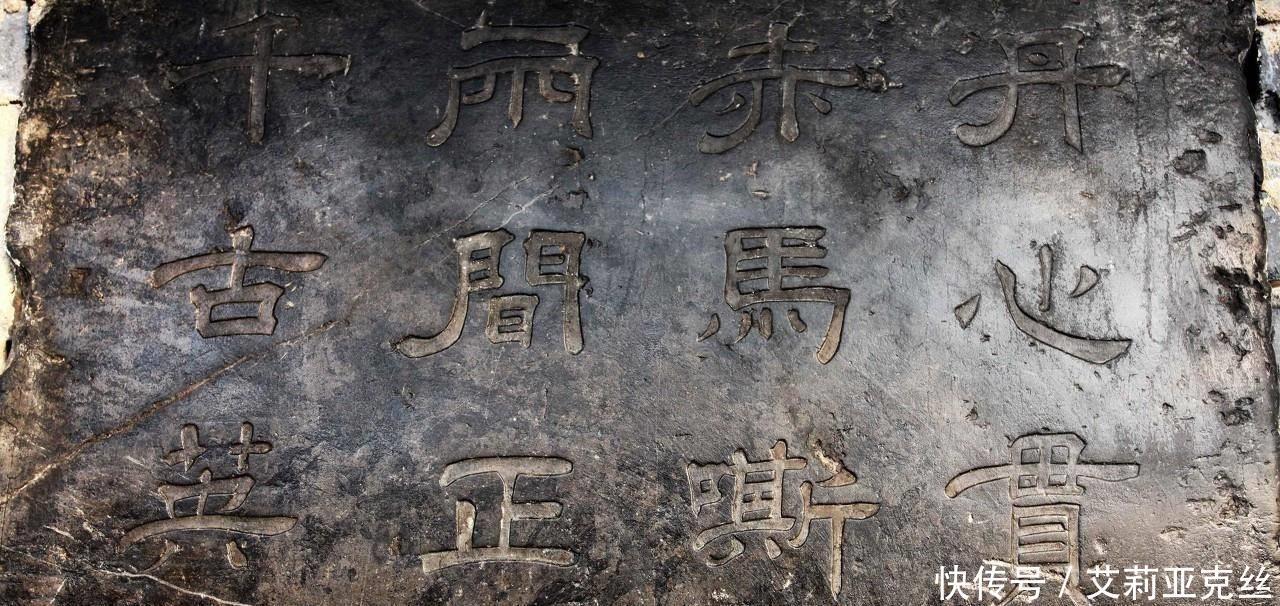 丹心貫
赤馬嘶
兩間正
千古英
快传号 / 艾莉亚克丝